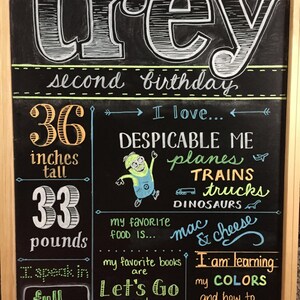 trey
second birthday
36
inches
tall
I love...
DESPICABLE ME
planes
TRAINS
trucks
DINOSAURS
33
pounds
my favorite
food is...
mac & cheese
I speak in
full
my favorite books
are
Let's Go
I am learning
my COLORS
and how to